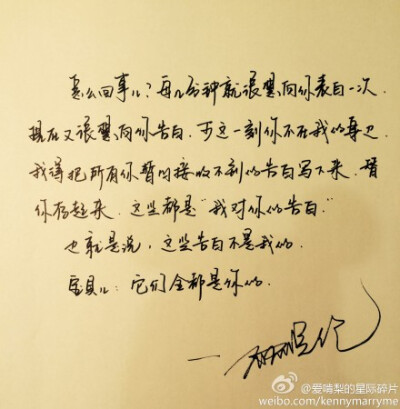 怎么回事儿？每几分钟就很想向你表白一次.
现在又很想向你告白. 可这一刻你不在我的身边
我得把所有你暂时接收不到的告白写下来. 替
你存起来. 这些都是“我对你的告白.”
也就是说, 这些告白不是我的.
宝贝儿: 它们全都是你的.
一
@爱啃梨的星际碎片
weibo.com/kennymarryme